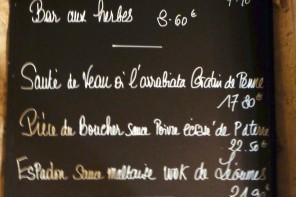 Bar aux herbes 8.60€
Sauté de Veau à l'arrabiata Gratin de Penne
17.80€
Pièce du Boucher Sauce Poivre écrasé de Patate
22.50€
Espadon Sauce maltaise wok de Légumes
21.90